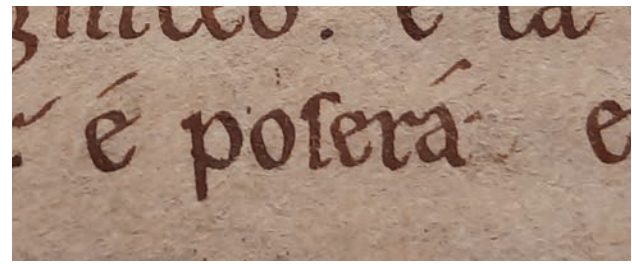 . e la
é poſerá e